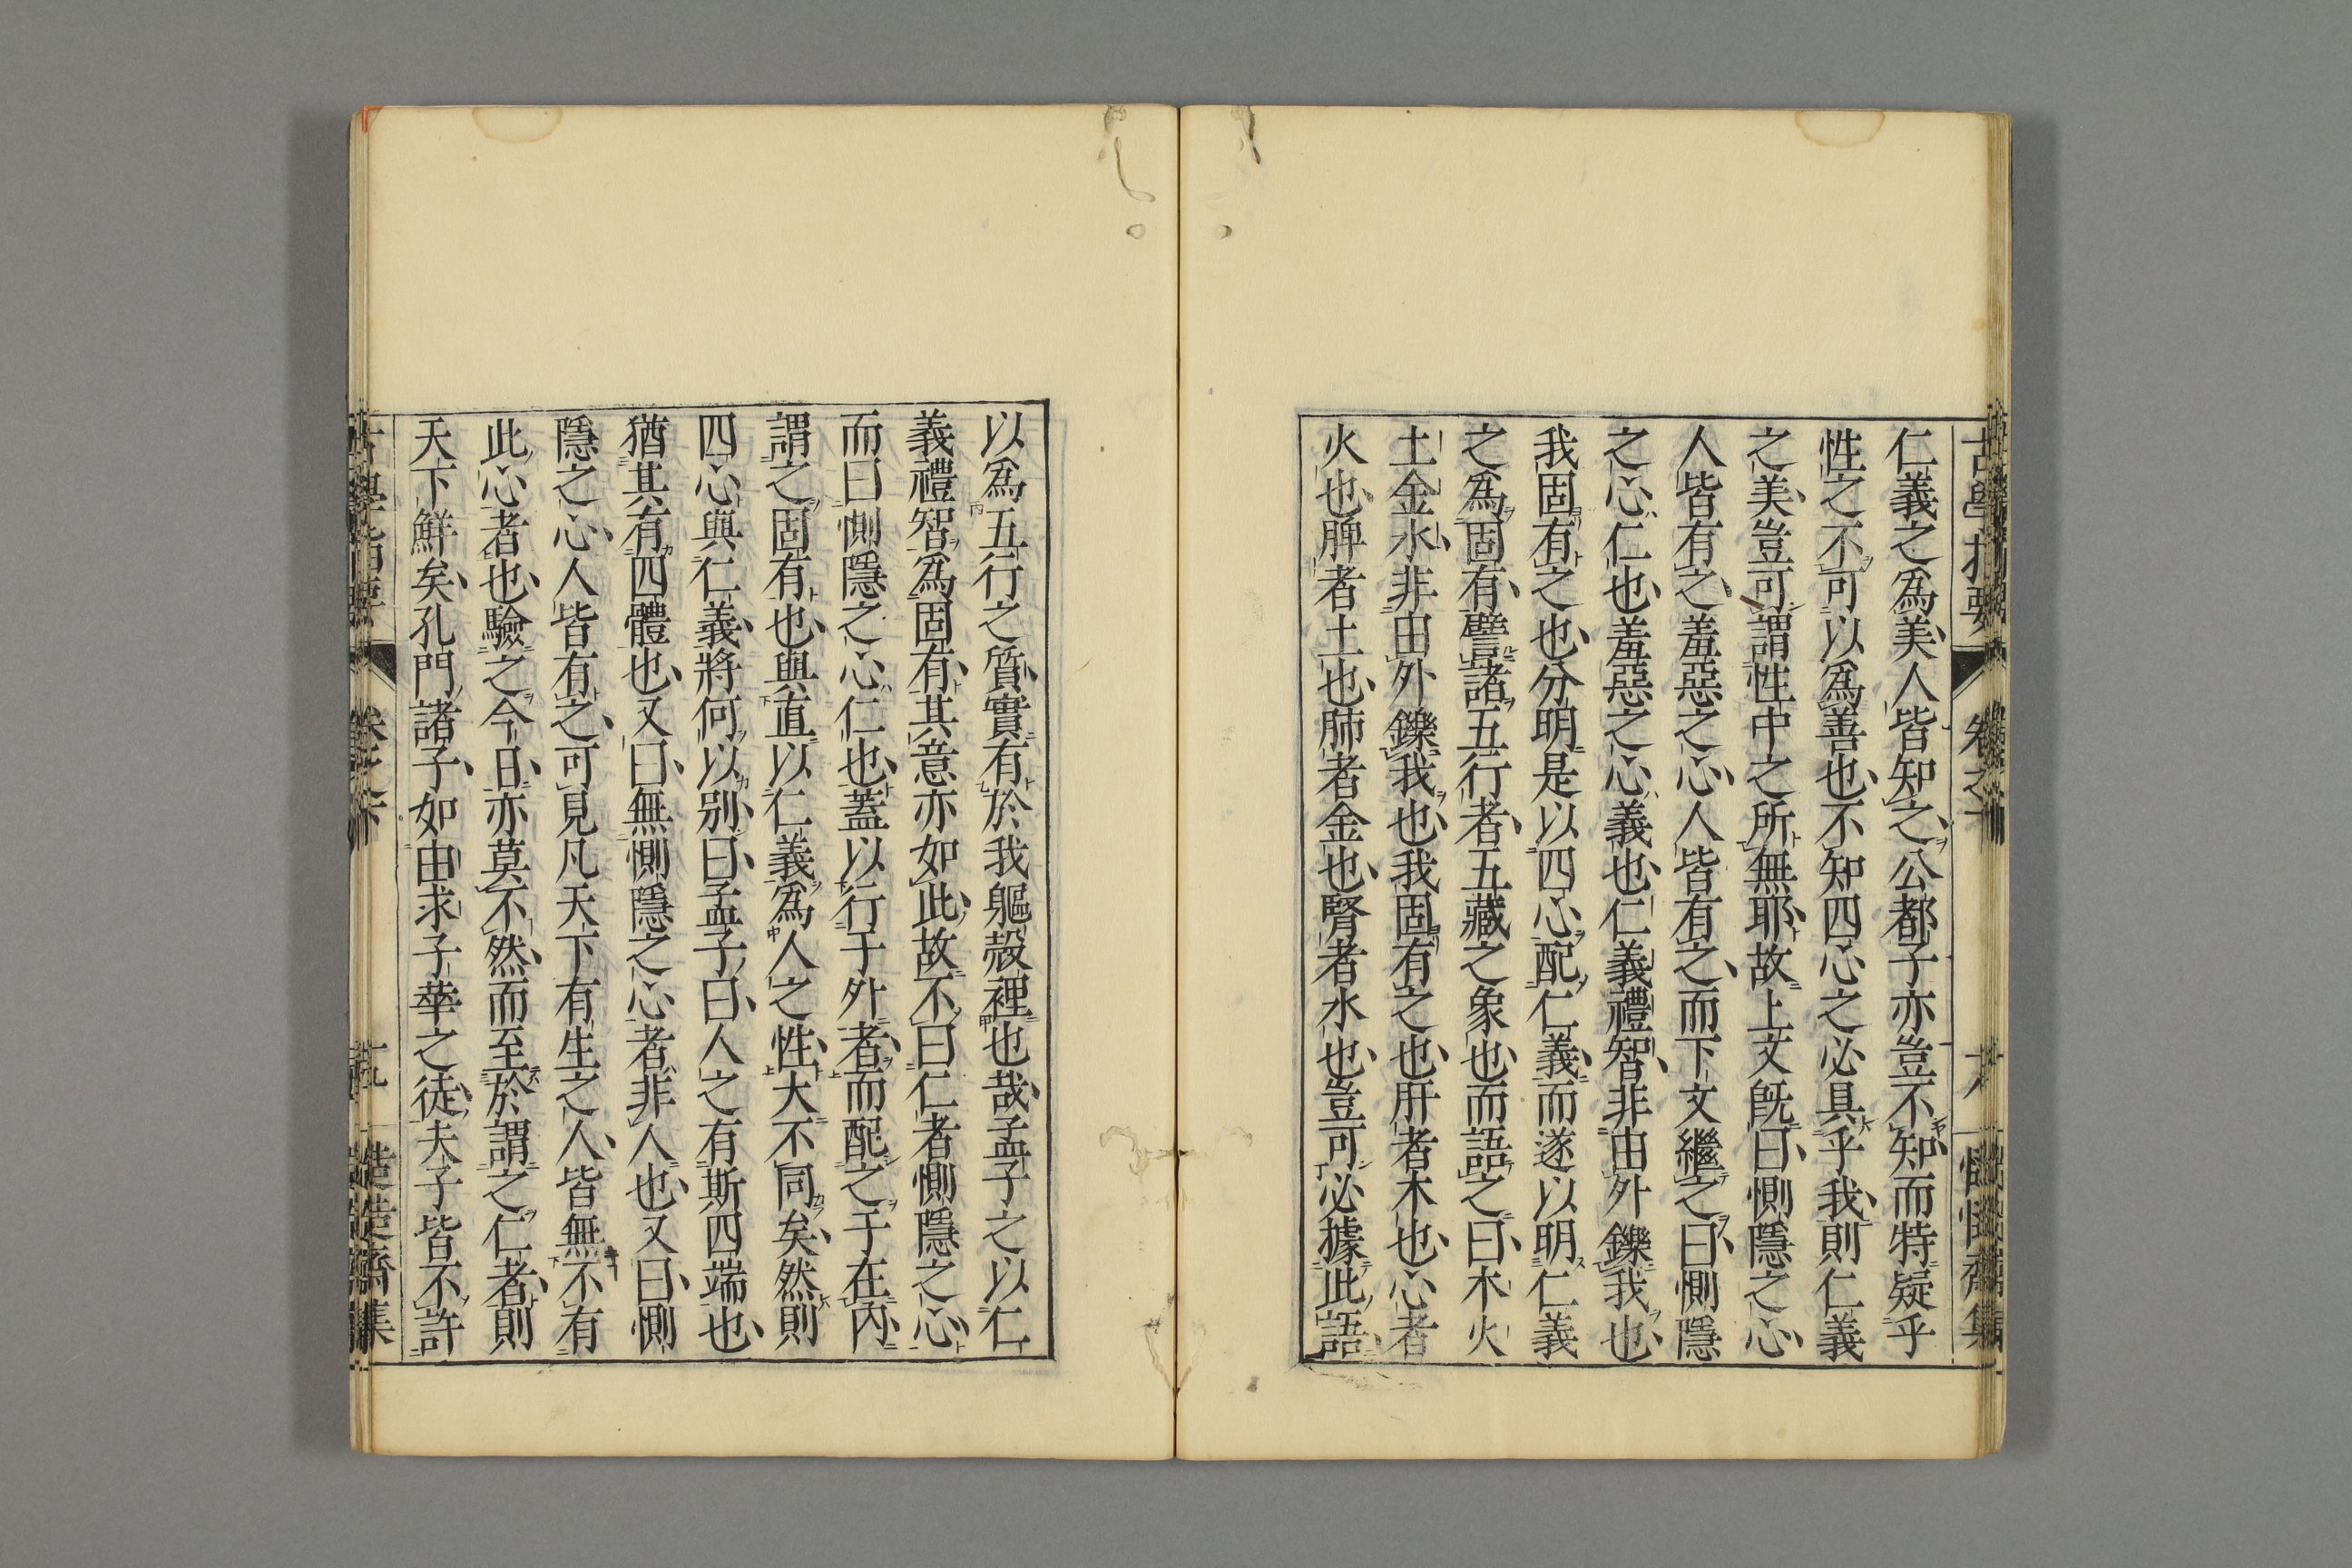 仁義之爲美、人皆知之、公都子亦豈不知、而特疑乎
性之不可以爲善也、不知四心之必具乎我、則仁義
之美、豈可謂性中之所無耶、故上文既曰、惻隱之心、
人皆有之、羞惡之心、人皆有之、而下文繼之曰、惻隱
之心仁也、羞惡之心、義也、仁義禮智、非由外鑠我也、
我固有之也、分明是以四心配仁義、而遂以明仁義
之爲固有、譬諸五行者、五藏之象也、而語之曰、木火
土金水、非由外鑠我也、我固有之也、肝者木也、心者
火也、脾者土也、肺者金也、腎者水也、豈可必據此語、
以爲五行之質、實有於我軀殼裡也哉、孟子之以仁
義禮智爲固有、其意亦如此、故不曰仁者惻隱之心、
而曰惻隱之心仁也、蓋以行于外者、而配之于在內、
謂之固有也、與直以仁義爲人之性、大不同矣、然則
四心與仁義、將何以別、曰、孟子曰、人之有斯四端也、
猶其有四體也、又曰、無惻隱之心者、非人也、又曰、惻
隱之心、人皆有之、可見凡天下有生之人、皆無不有
此心者也、驗之今日、亦莫不然、而至於謂之仁者、則
天下鮮矣、孔門諸子、如由求子華之徒、夫子皆不許